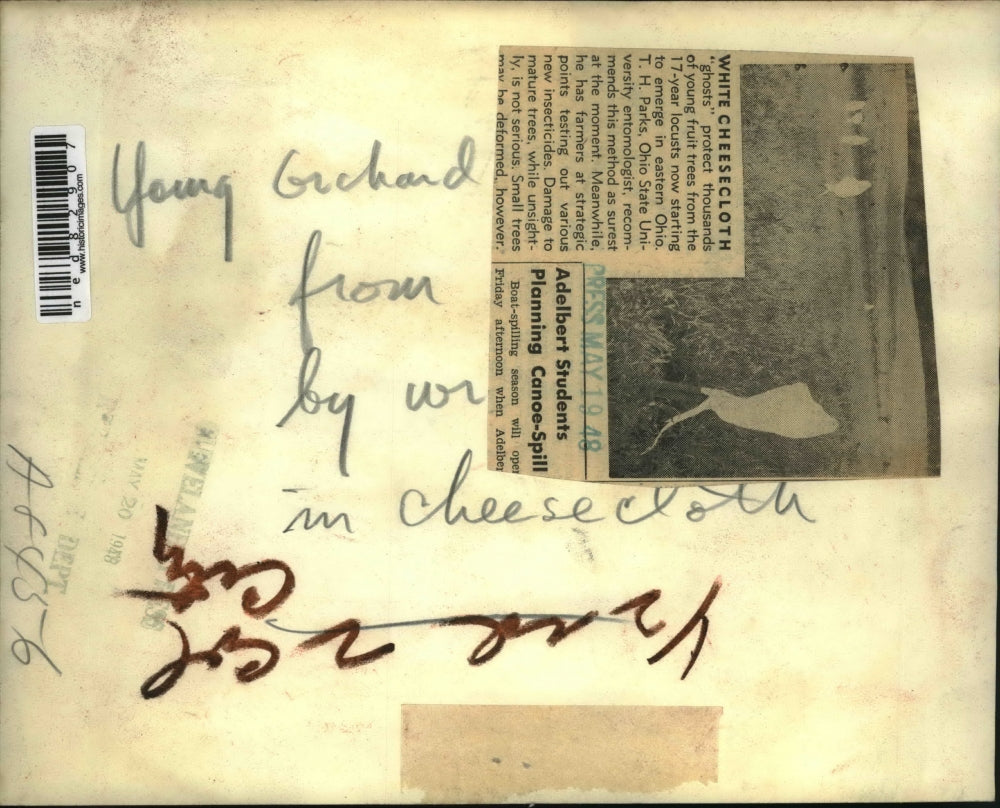 Young Orchard
from
by wr
in cheesecloth
WHITE CHEESECLOTH
"ghosts" protect thousands
of young fruit trees from the
17-year locusts now starting
to emerge in eastern Ohio.
T. H. Parks, Ohio State Uni-
versity entomologist, recom-
mends this method as surest
at the moment. Meanwhile,
he has farmers at strategic
points testing out various
new insecticides. Damage to
mature trees, while unsight-
ly, is not serious. Small trees
may be deformed, however.
PRESS MAY 19 48
Adelbert Students
Planning Canoe-Spill
Boat-spilling season will open
Friday afternoon when Adelber
ned82907
www.historicimages.com
CLEVELAND PRESS
MAY 20 1948
DEPT
2 Col
City